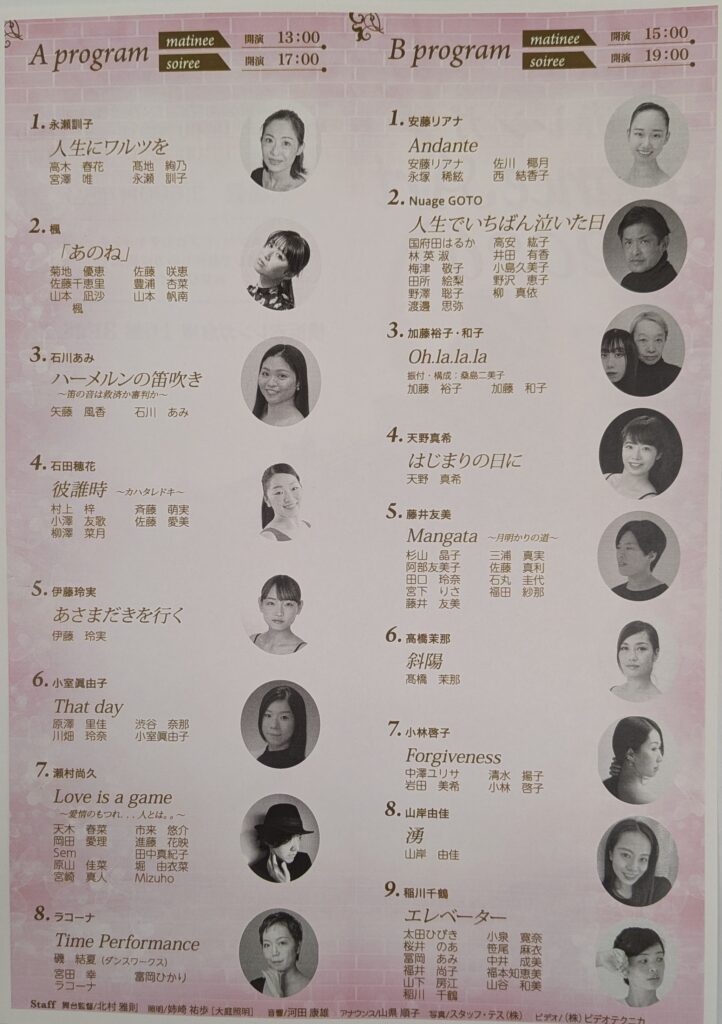 A program
matinee 開演 13:00
soiree 開演 17:00
1. 永瀬訓子
人生にワルツを
高木 春花 髙地 絢乃
宮澤 唯 永瀬 訓子
2. 楓
「あのね」
菊地 優恵 佐藤 咲恵
佐藤千恵里 豊浦 杏菜
山本 凪沙 山本 帆南
楓
3. 石川あみ
ハーメルンの笛吹き
～笛の音は救済か審判か～
矢藤 風香 石川 あみ
4. 石田穂花
彼誰時 ～カハタレドキ～
村上 梓 斉藤 萌実
小澤 友歌 佐藤 愛美
柳澤 菜月
5. 伊藤玲実
あさまだきを行く
伊藤 玲実
6. 小室眞由子
That day
原澤 里佳 渋谷 奈那
川畑 玲奈 小室眞由子
7. 瀬村尚久
Love is a game
～愛情のもつれ...人とは。。～
天木 春菜 市来 悠介
岡田 愛理 進藤 花映
Sem 田中真紀子
原山 佳菜 堀 由衣菜
宮崎 真人 Mizuho
8. ラコーナ
Time Performance
磯 結夏 (ダンスワークス)
宮田 幸 富岡ひかり
ラコーナ
B program
matinee 開演 15:00
soiree 開演 19:00
1. 安藤リアナ
Andante
安藤リアナ 佐川 椰月
永塚 稀絃 西 結香子
2. Nuage GOTO
人生でいちばん泣いた日
国府田はるか 高安 紘子
林 英 淑 井田 有香
梅津 敬子 小島久美子
田所 絵梨 野沢 恵子
野澤 聡子 柳 真依
渡邊 思弥
3. 加藤裕子・和子
Oh.la.la.la
振付・構成：桑島二美子
加藤 裕子 加藤 和子
4. 天野真希
はじまりの日に
天野 真希
5. 藤井友美
Mangata ～月明かりの道～
杉山 晶子 三浦 真実
阿部友美子 佐藤 真利
田口 玲奈 石丸 圭代
宮下 りさ 福田 紗那
藤井 友美
6. 髙橋茉那
斜陽
髙橋 茉那
7. 小林啓子
Forgiveness
中澤ユリサ 清水 揚子
岩田 美希 小林 啓子
8. 山岸由佳
湧
山岸 由佳
9. 稲川千鶴
エレベーター
太田ひびき 小泉 寛奈
桜井 のあ 笹尾 麻衣
冨岡 あみ 中井 成美
福井 尚子 福本知恵美
山下 房江 山谷 和美
稲川 千鶴
Staff 舞台監督/北村 雅則 照明/姉崎 祐歩 [大庭照明] 音響/河田 康雄 アナウンス/山県 順子 写真/スタッフ・テス(株) ビデオ/(株)ビデオテクニカ